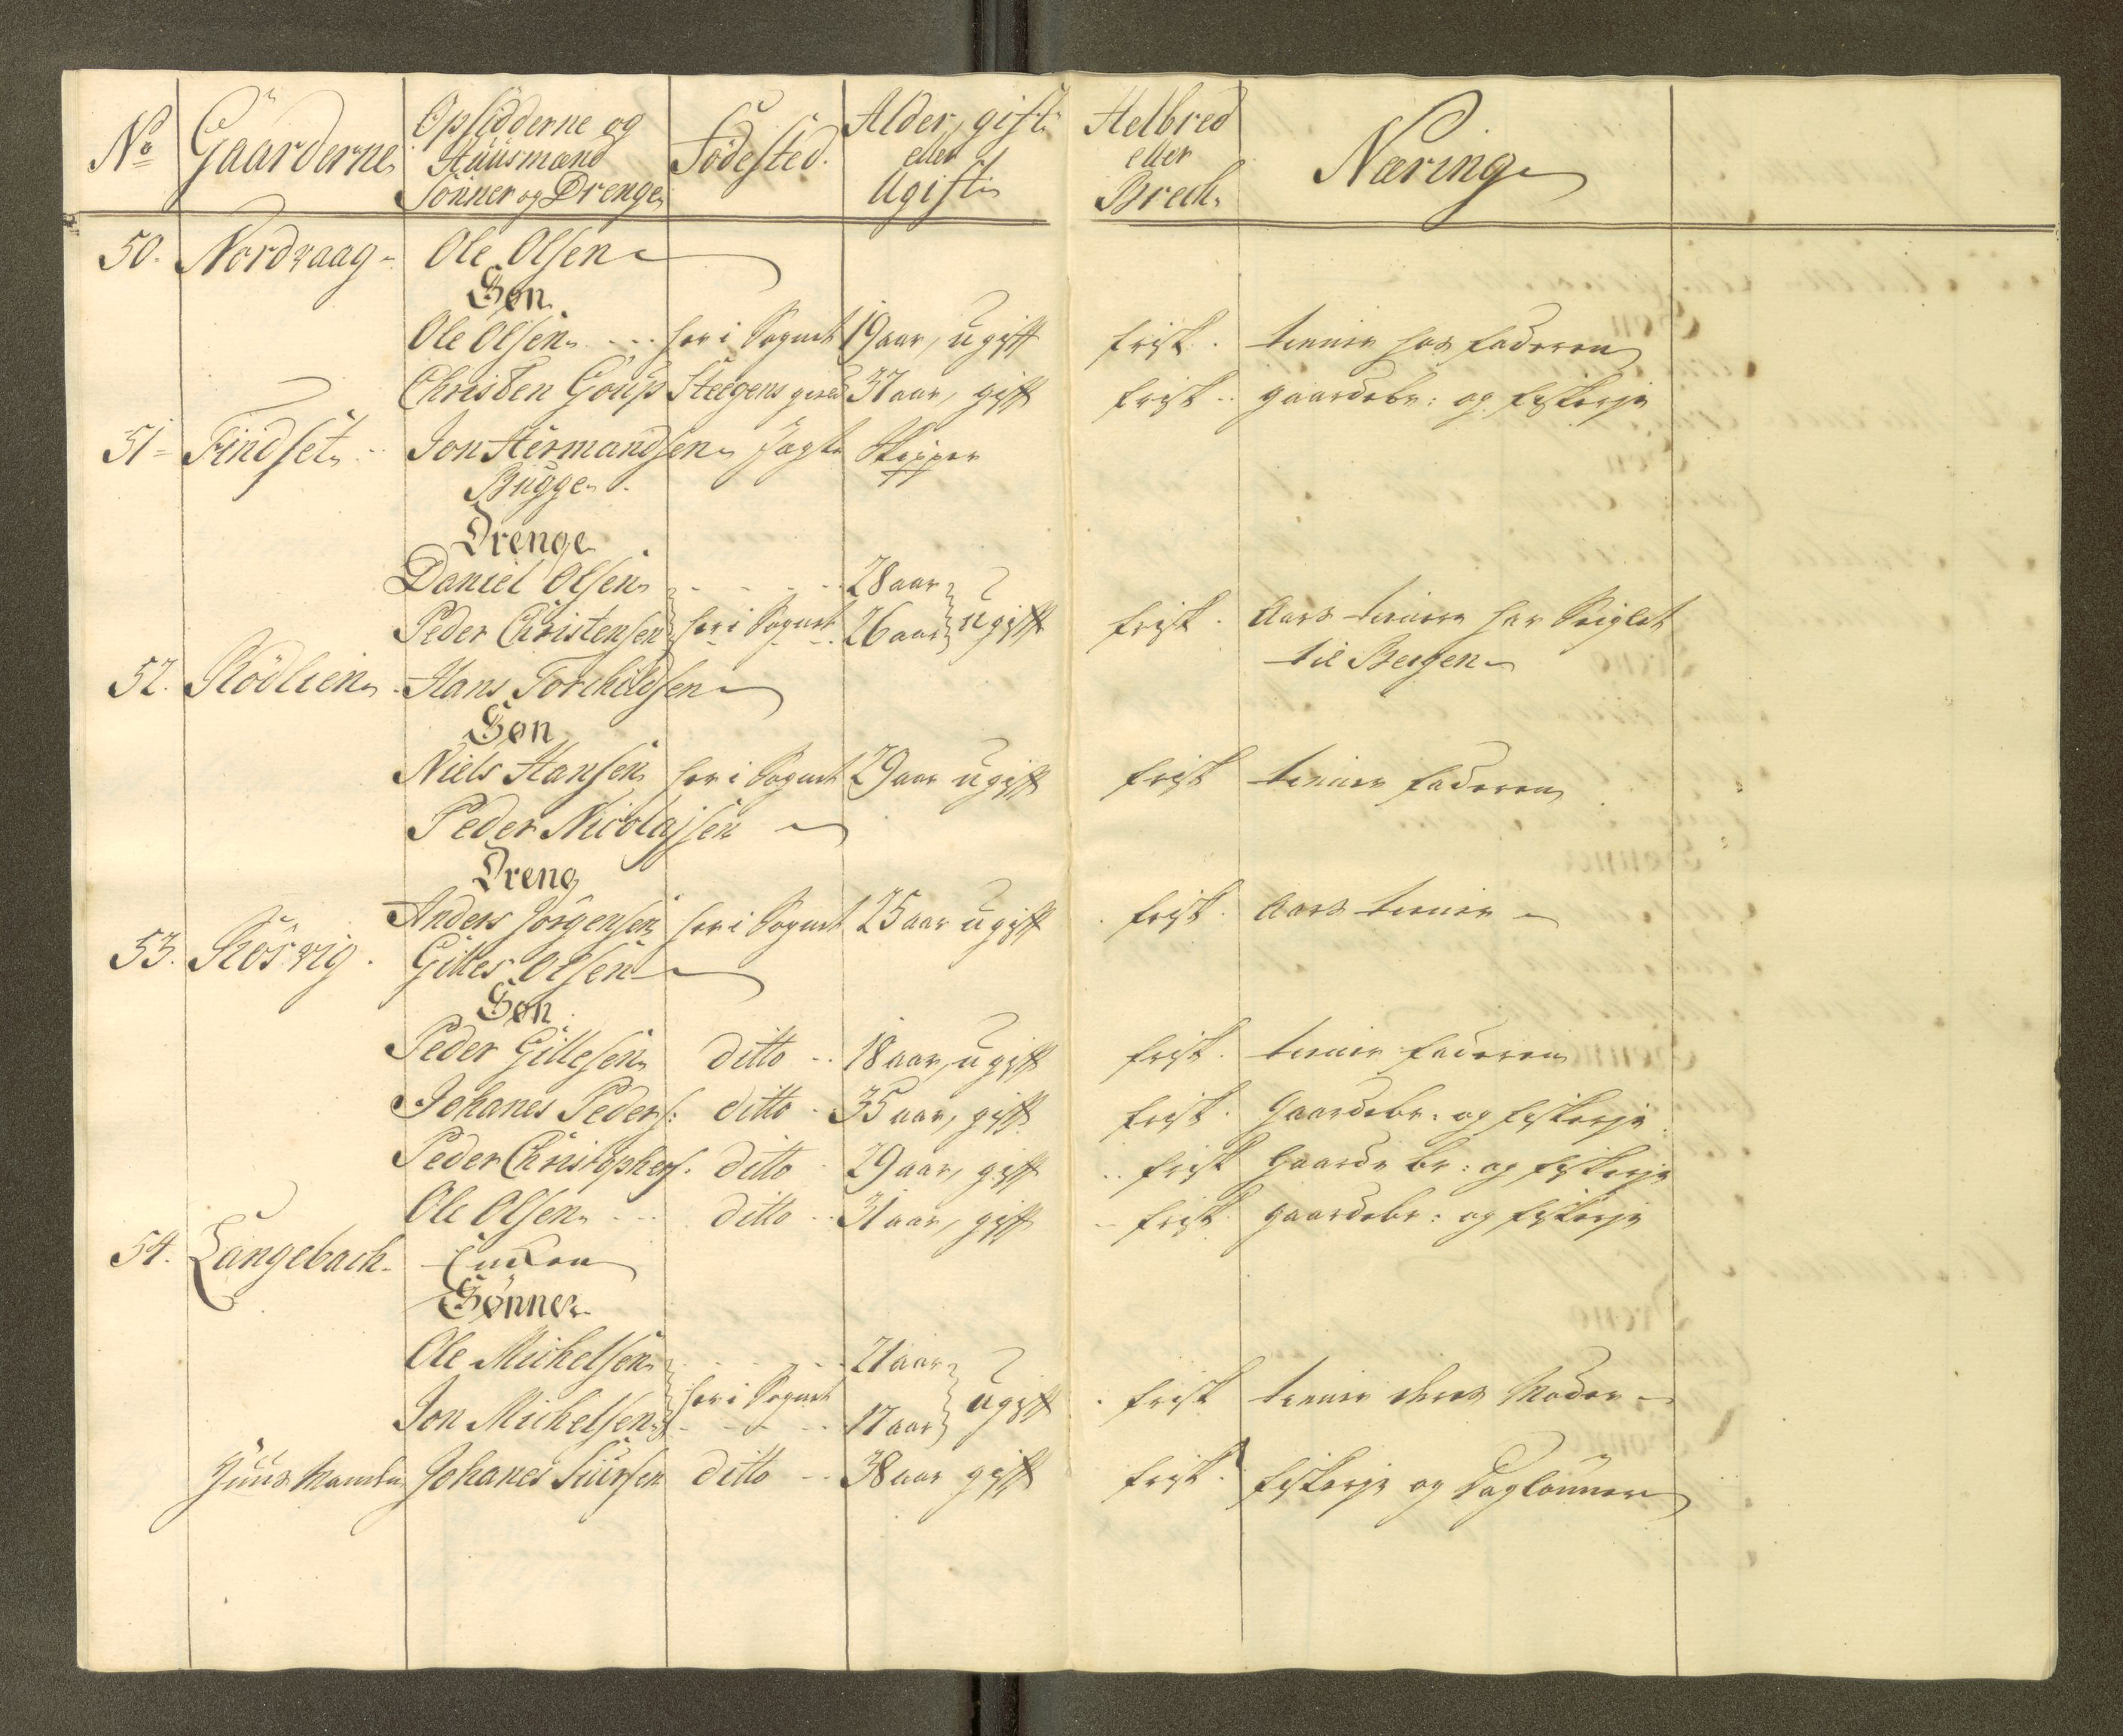 No Gaarderne Opsidderne og Huusmænd Sönner og Drenge Födested. Alder, gift eller Ugift Helbred eller Brech. Næring
50. Nordvaag Ole Olsen
Søn
Ole Olsen her i Sognet 19 aar, ugift frisk. tiener hos faderen
Christen Goup Steegens 37 aar, gift frisk gaardebr: og fiskerje
51 Findset Jon Hermandsen Jagte Skipper
Bugge
Drenge
Daniel Olsen 28 aar
Peder Christensen her i Sognet 26 aar ugift frisk. Aars tienere har Seiglet
til Bergen
52. Rödlien Hans Torchildsen
Søn
Niels Hansen her i Sognet 29 aar ugift frisk tiener faderen
Peder Nicolajsen
Dreng
Anders Jörgensen her i Sognet 25 aar ugift frisk. Aars tiener
53. Rösvig. Gilles Olsen
Søn
Peder Gillesen ditto 18 aar, ugift frisk. tiener faderen
Johanes Peders: ditto 35 aar, gift frisk. Gaardebr. og fiskerje
Peder Christophers. ditto 29 aar, gift frisk Gaarde br: og fiskerje
Ole Olsen ditto 31 aar, gift frisk gaardebr: og fiskerje
54. Langebach Encken
Sønner
Ole Michelsen 21 aar
her i Sognet ugift frisk tiener deres Moder
Jon Michelsen 17 aar
Huus Manden Johanes Siursen ditto 38 aar gift frisk. fiskerje og Daglönner